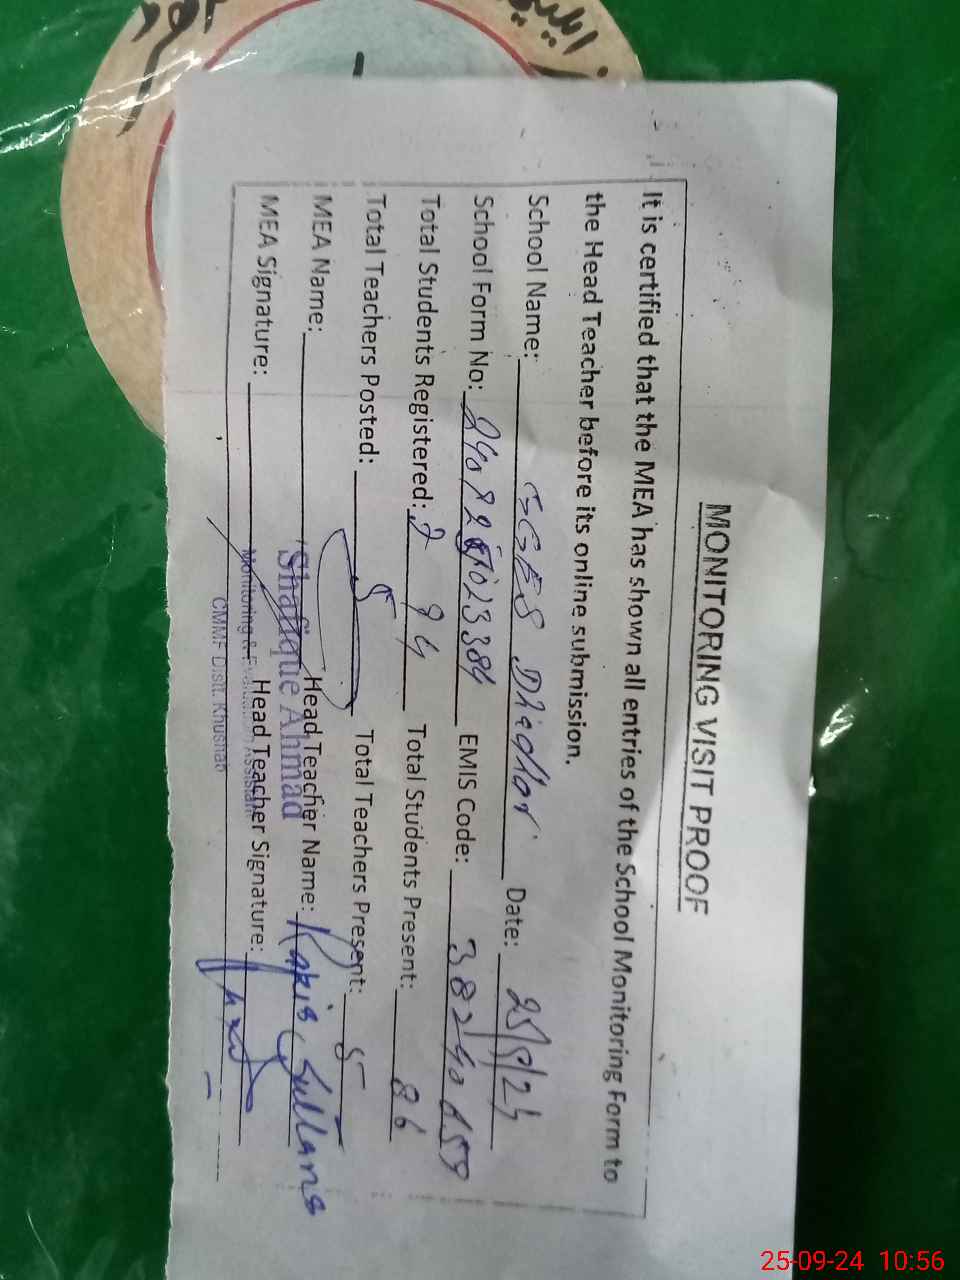 MONITORING VISIT PROOF
It is certified that the MEA has shown all entries of the School Monitoring Form to
the Head Teacher before its online submission.
School Name: GGES Dhadhar Date: 25/9/24
School Form No: EMIS Code: 38240659
Total Students Registered: 94 Total Students Present: 86
Total Teachers Posted: 5 Total Teachers Present: 5
MEA Name: Shafique Ahmad Head Teacher Name: Sultana
MEA Signature: Monitoring & Evaluation Assistant Head Teacher Signature:
CMMF Distt. Khushab
25-09-24 10:56